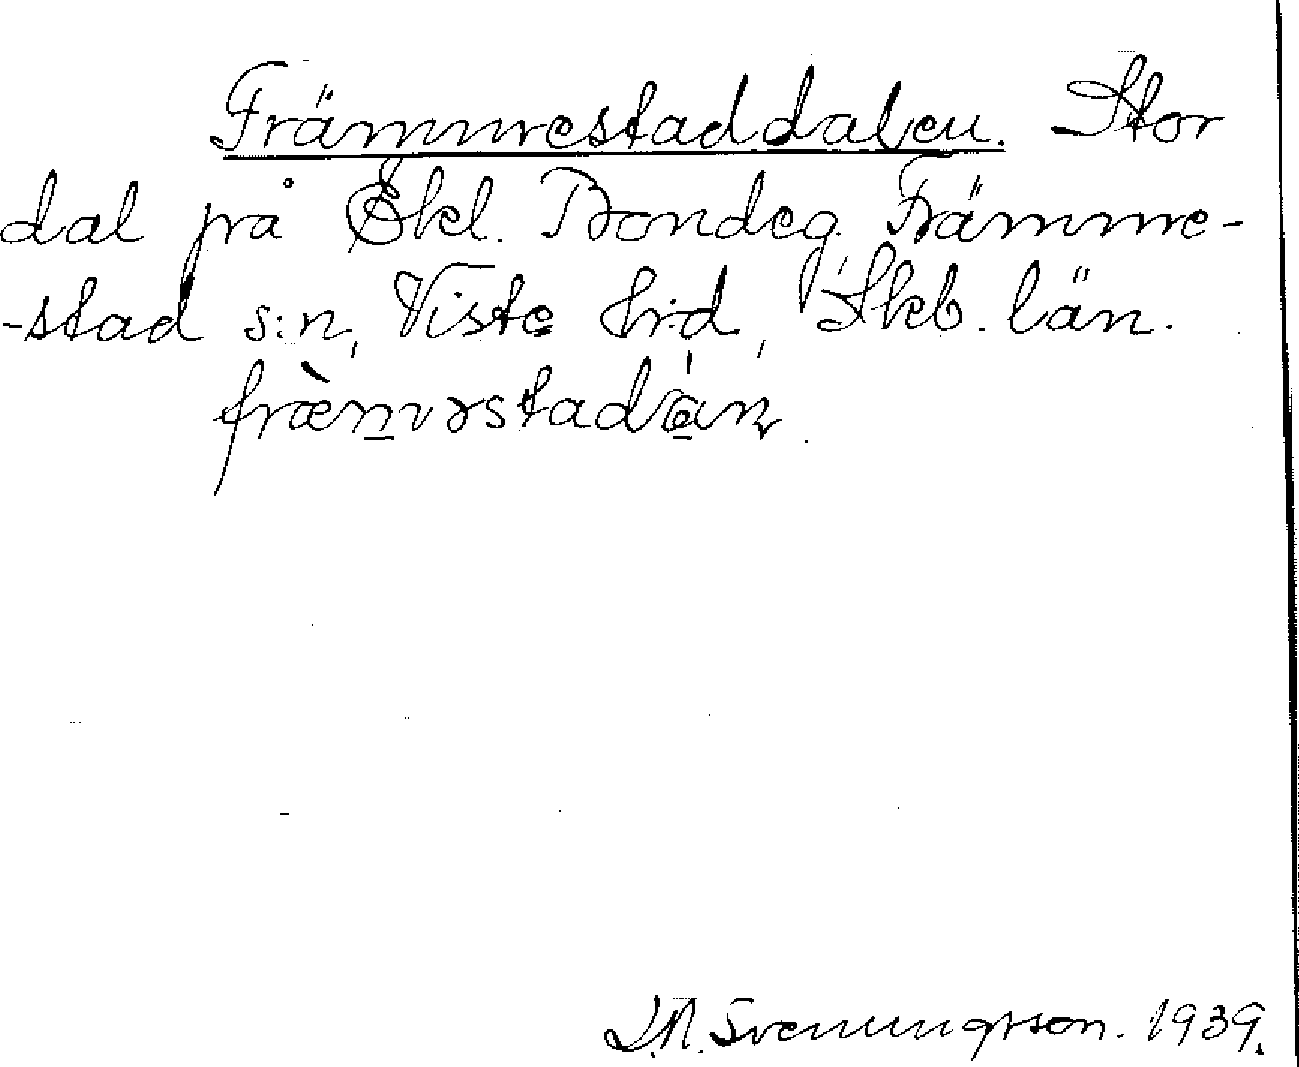 Främmestaddalen. Stor
dal på Ekl. Bondeg. Främme-
-stad s:n, Viste hrd, Skb. län.
J.A. Svenungsson. 1939.